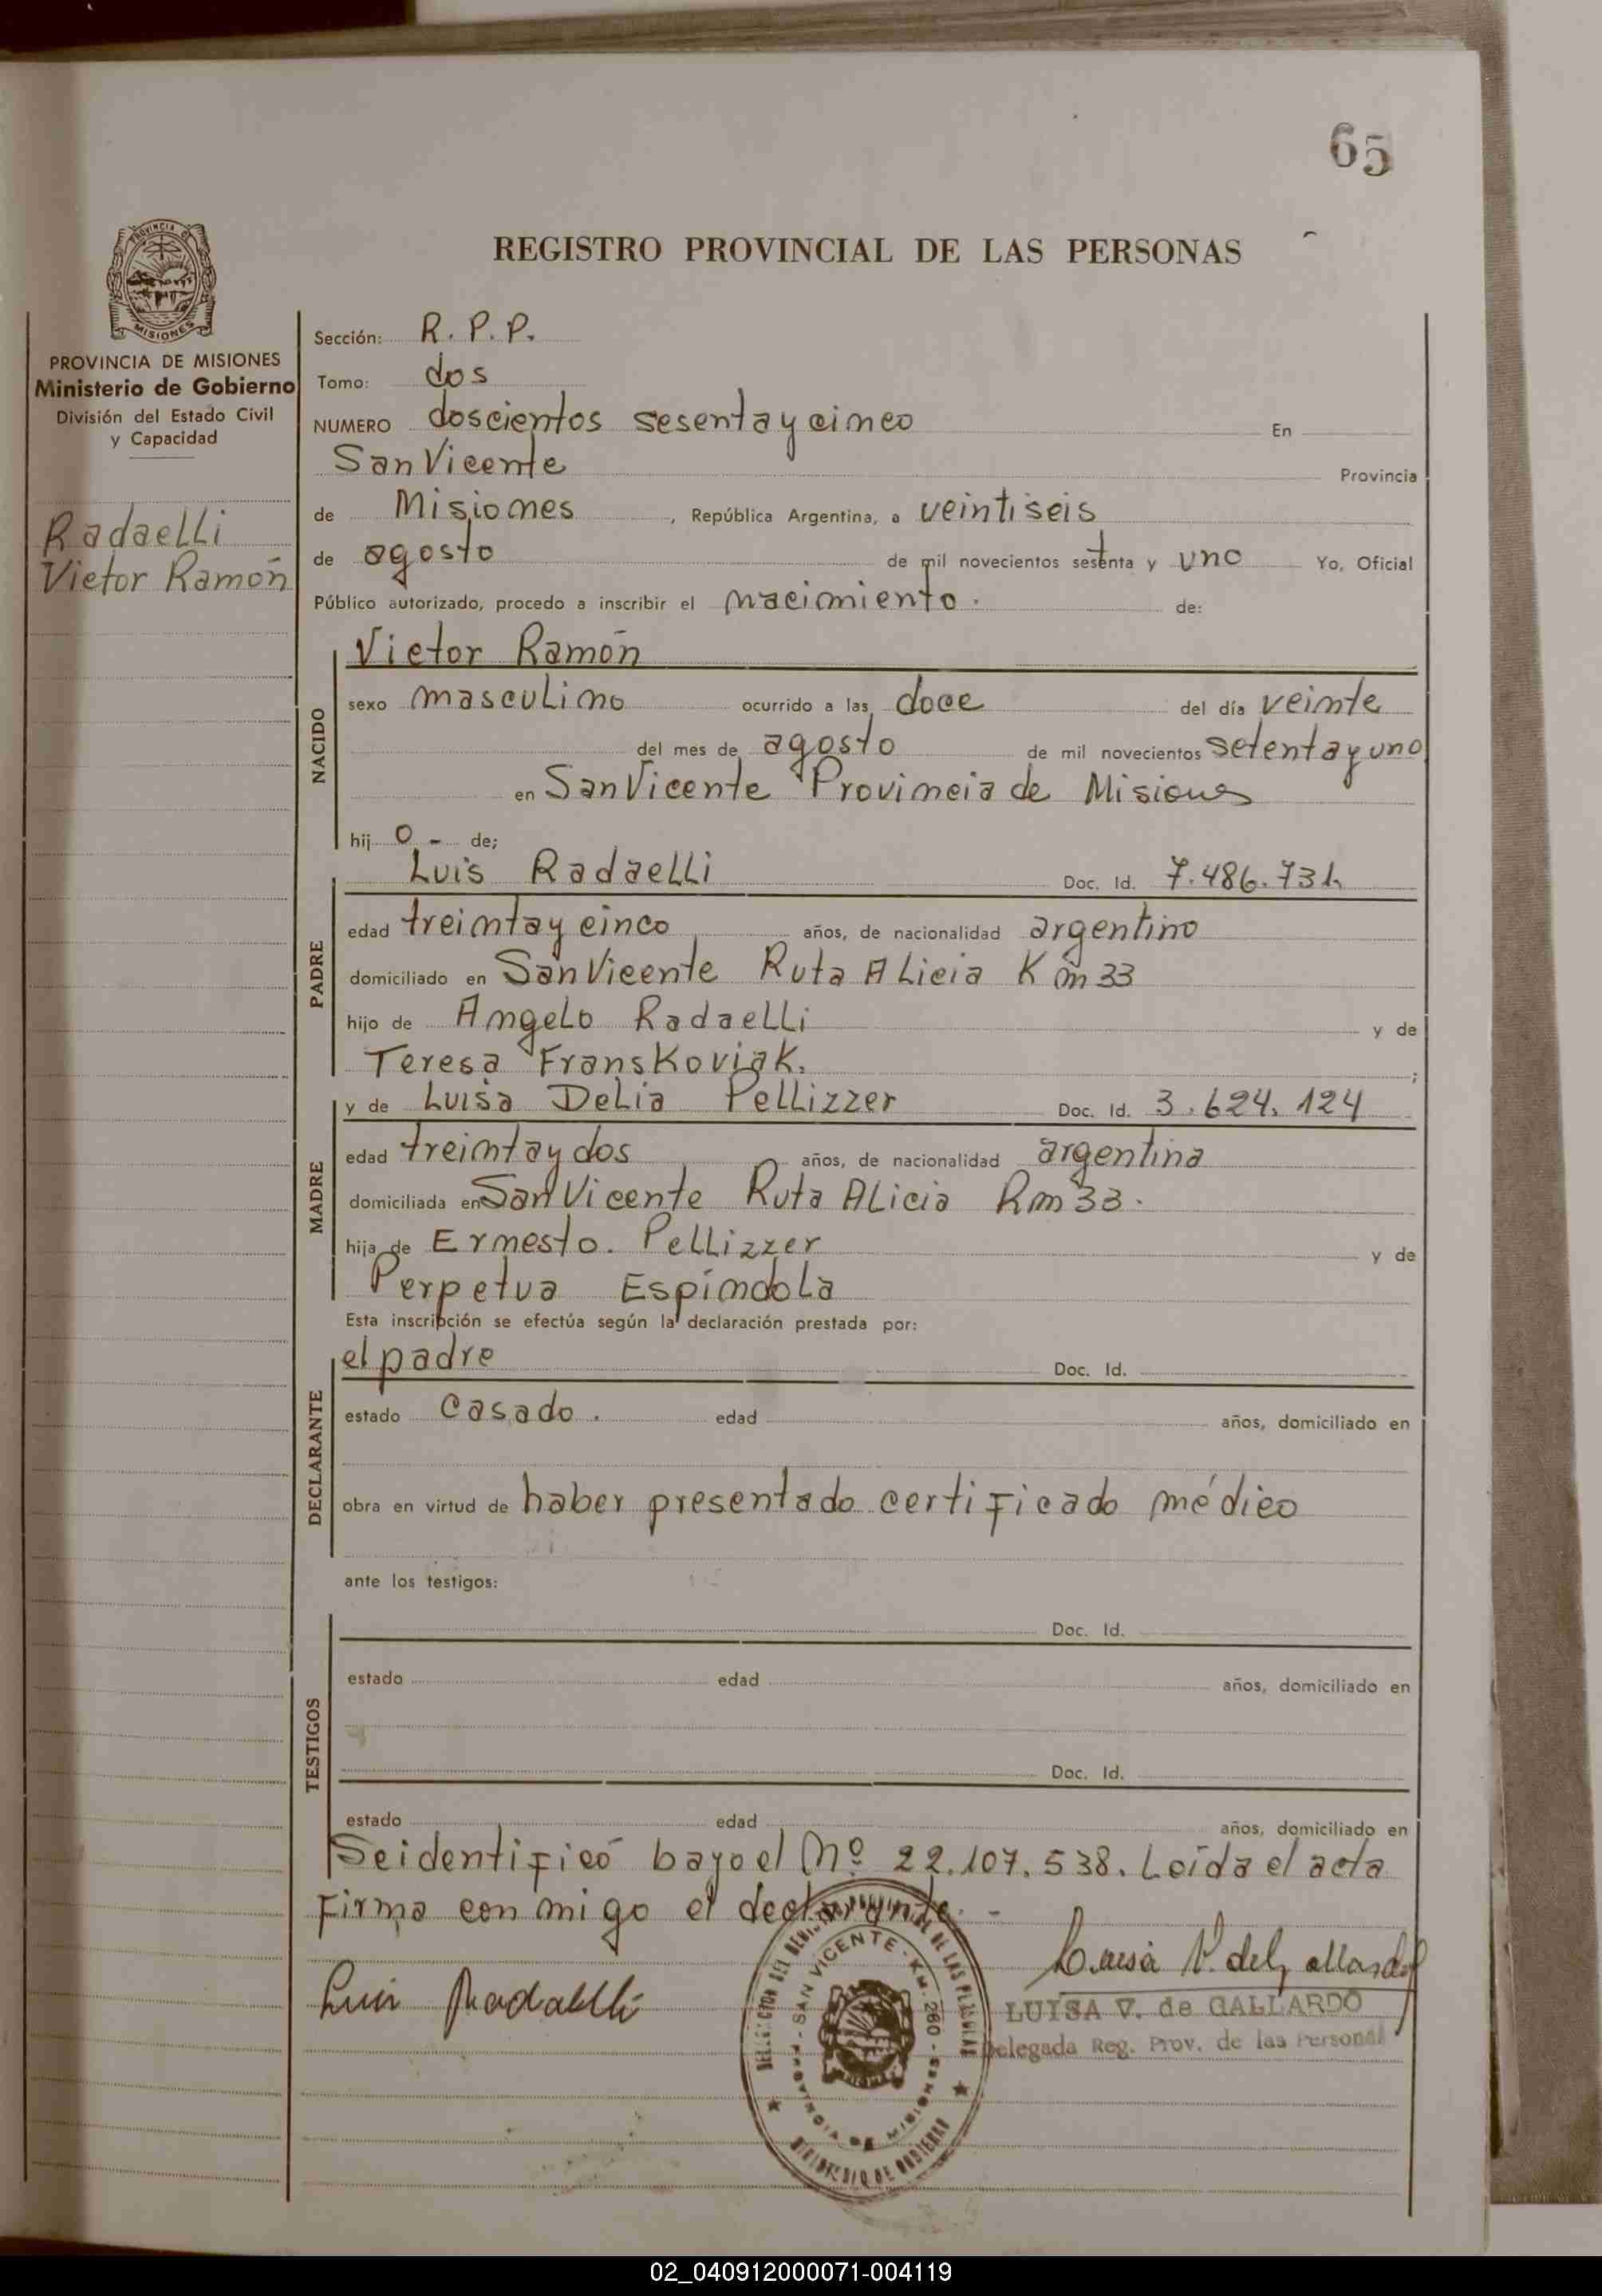 65
REGISTRO PROVINCIAL DE LAS PERSONAS
PROVINCIA DE MISIONES
PROVINCIA DE MISIONES
Ministerio de Gobierno
División del Estado Civil
y Capacidad
Radaelli
Victor Ramón
Sección: R. P. P.
Tomo: dos
NUMERO doscientos sesenta y cinco En
San Vicente Provincia
de Misiones, República Argentina, a veintiseis
de agosto de mil novecientos setenta y uno Yo, Oficial
Público autorizado, procedo a inscribir el nacimiento. de:
NACIDO
Victor Ramón
sexo masculino ocurrido a las doce del día veinte
del mes de agosto de mil novecientos setenta y uno
en San Vicente Provincia de Misiones
hijo - de;
PADRE
Luis Radaelli Doc. Id. 7.486.731
edad treinta y cinco años, de nacionalidad argentino
domiciliado en San Vicente Ruta Alicia Km 33
hijo de Angelo Radaelli y de
Teresa Franskoviak. ;
MADRE
y de Luisa Delia Pellizzer Doc. Id. 3.624.124
edad treinta y dos años, de nacionalidad argentina
domiciliada en San Vicente Ruta Alicia Km 33.
hija de Ernesto. Pellizzer y de
Perpetua Espíndola
Esta inscripción se efectúa según la declaración prestada por:
DECLARANTE
el padre Doc. Id.
estado casado. edad años, domiciliado en
obra en virtud de haber presentado certificado médico
ante los testigos:
TESTIGOS
Doc. Id.
estado edad años, domiciliado en
Doc. Id.
estado edad años, domiciliado en
Se identificó bayo el Nº 22.107.538. Leída el acta
Firma con migo el declarante. -
Luis Radaelli
Luisa V. de Gallardo
LUISA V. de GALLARDO
Delegada Reg. Prov. de las Personas
SAN VICENTE - KM. 260 -
PROVINCIA DE MISIONES
MINISTERIO DE GOBIERNO
02_040912000071-004119